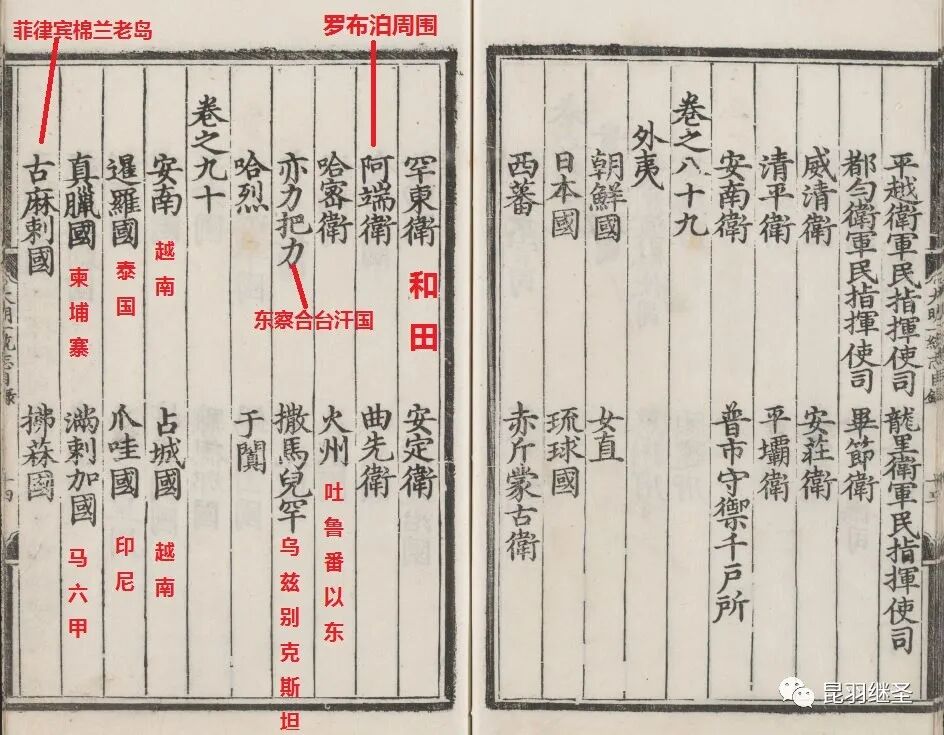 平越衛軍民指揮使司 龍里衛軍民指揮使司
都勻衛軍民指揮使司 畢節衛
威清衛 安莊衛
清平衛 平壩衛
安南衛 普市守禦千戶所
卷之八十九
外夷
朝鮮國 女直
日本國 琉球國
西蕃 赤斤蒙古衛
罕東衛 安定衛
和田
罗布泊周围
阿端衛 曲先衛
哈密衛 火州
吐鲁番以东
亦力把力 撒馬兒罕
东察合台汗国
乌兹别克斯坦
哈烈 于闐
卷之九十
安南 占城國
越南
越南
暹羅國 爪哇國
泰国
印尼
真臘國 滿剌加國
柬埔寨
马六甲
菲律宾棉兰老岛
古麻剌國 拂菻國
昆羽继圣